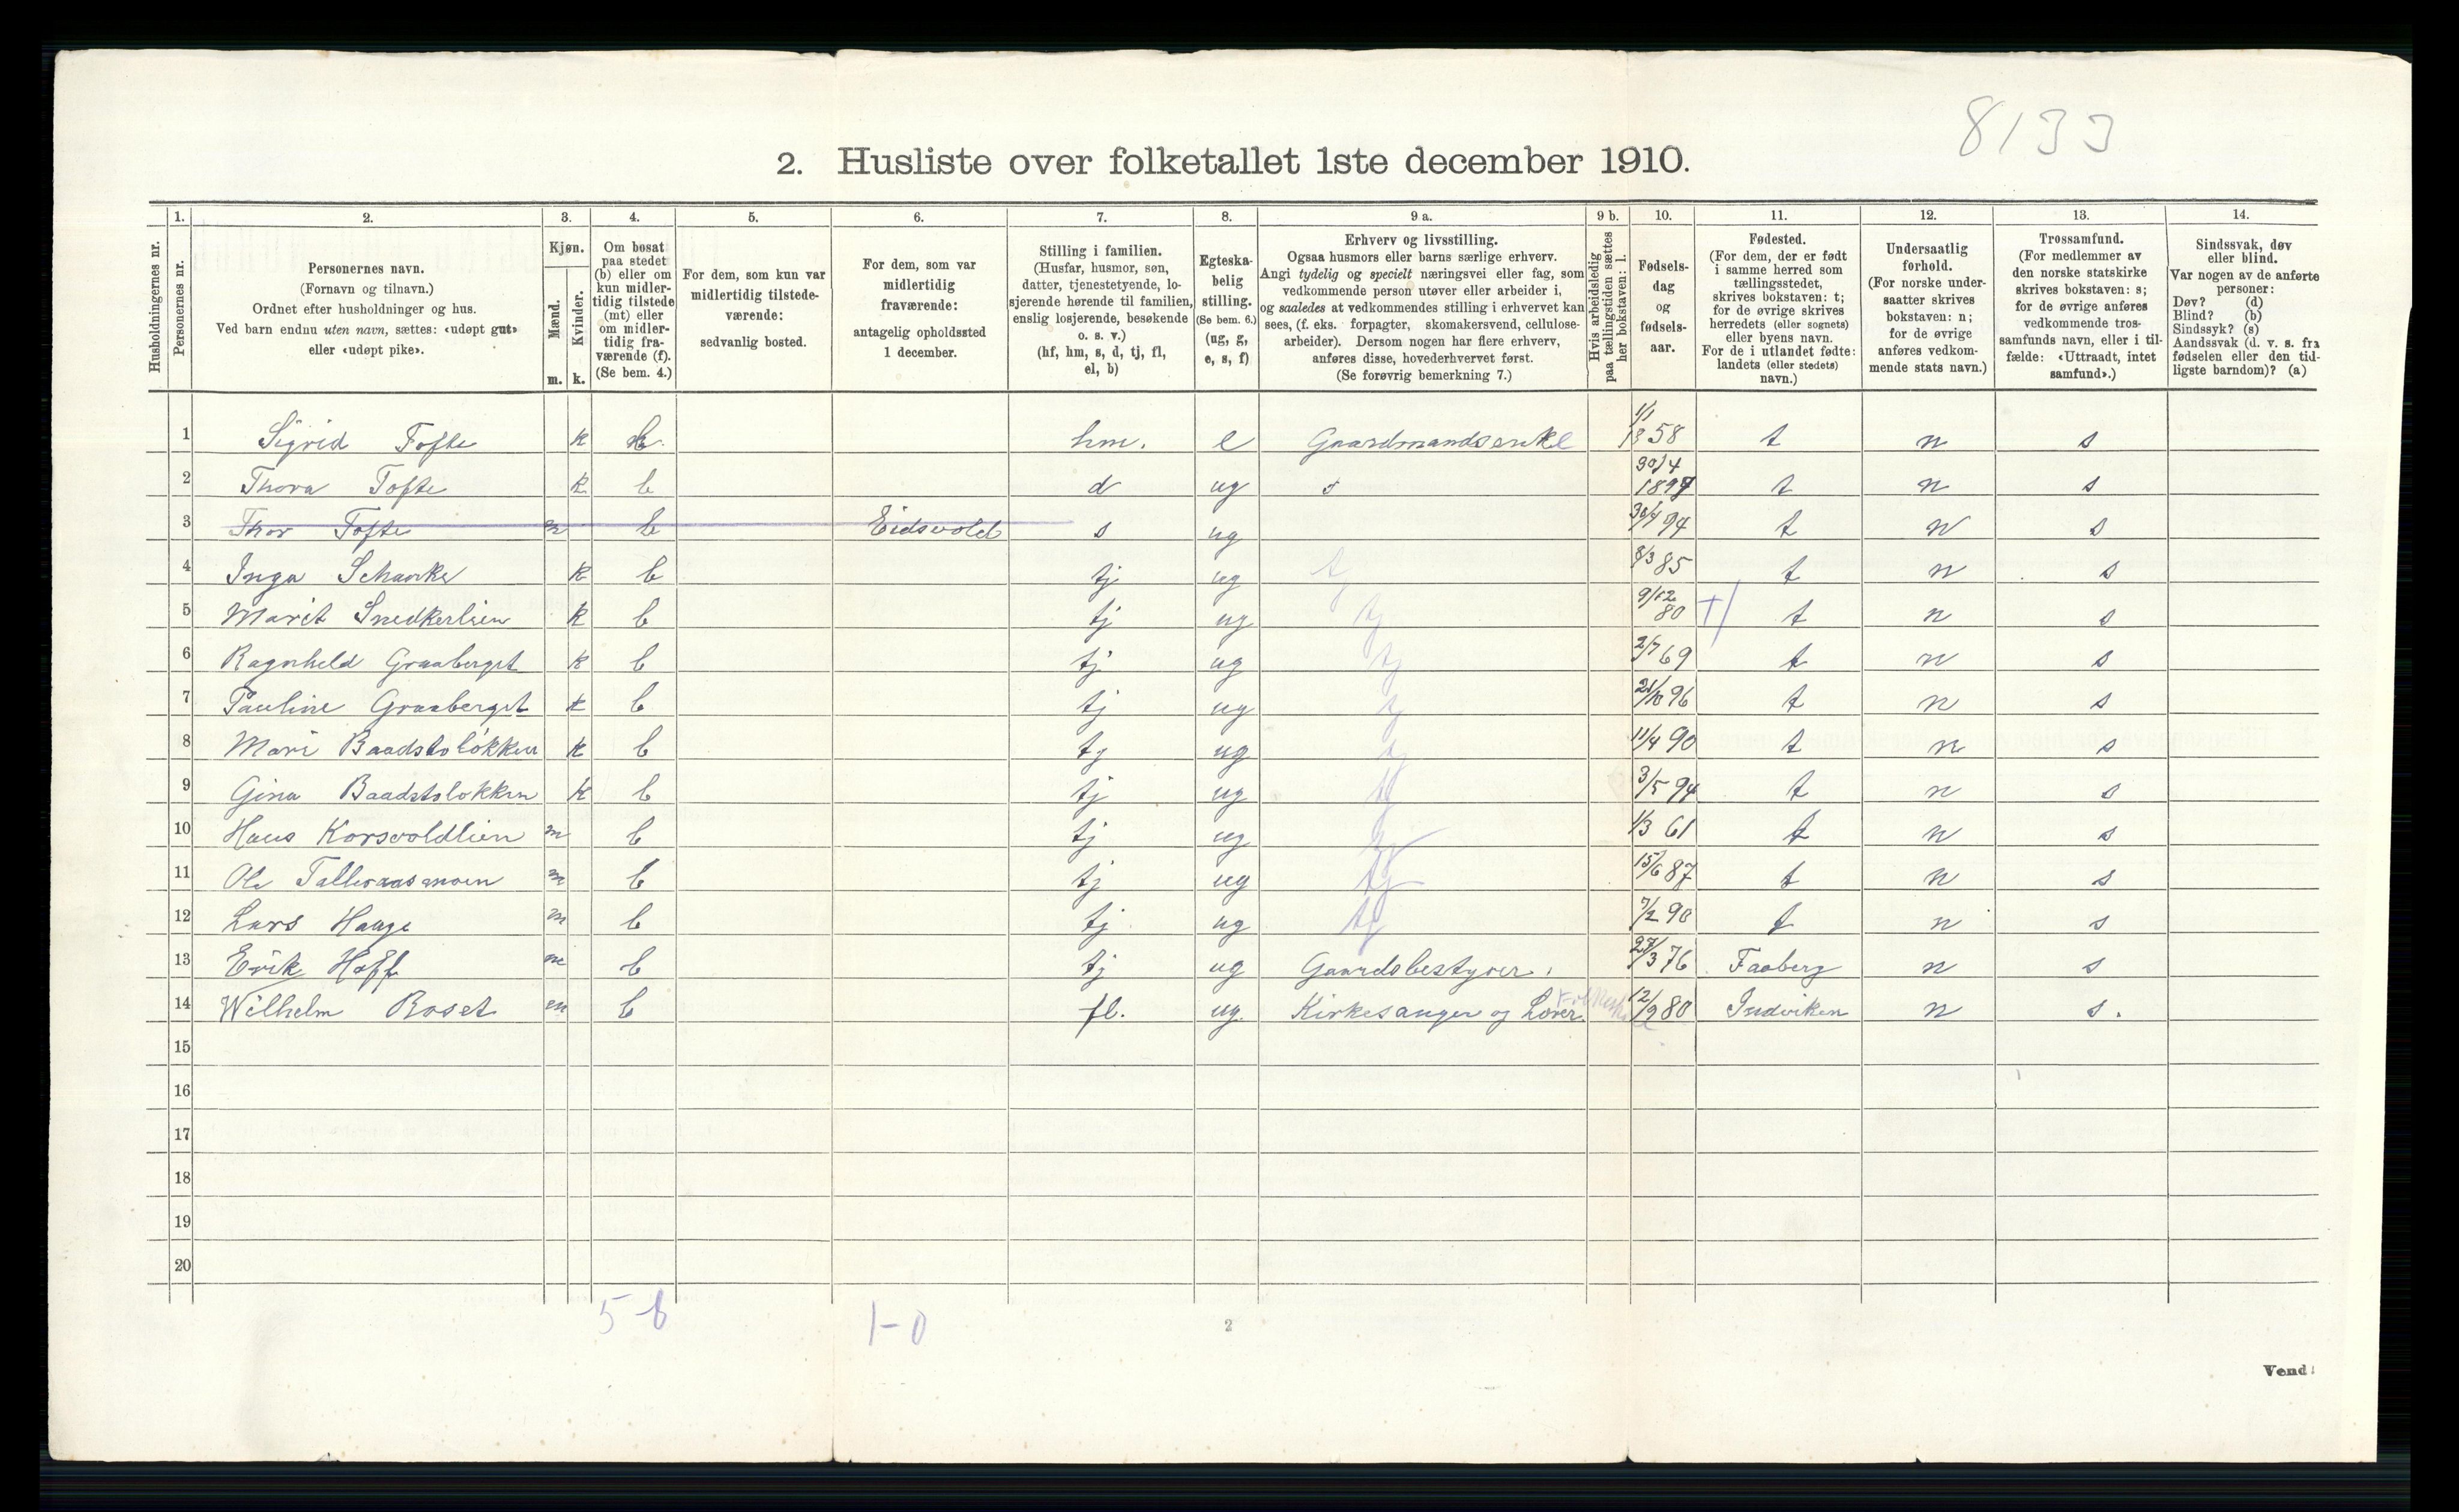 8133
2. Husliste over folketallet 1ste december 1910.
Husholdningernes nr.
1.
Personernes nr.
2.
Personernes navn.
(Fornavn og tilnavn.)
Ordnet efter husholdninger og hus.
Ved barn endnu uten navn, sættes: «udøpt gut»
eller «udøpt pike».
3.
Kjøn.
Mænd.
m.
Kvinder.
k.
4.
Om bosat
paa stedet
(b) eller om
kun midler-
tidig tilstede
(mt) eller
om midler-
tidig fra-
værende (f).
(Se bem. 4.)
5.
For dem, som kun var
midlertidig tilstede-
værende:
sedvanlig bosted.
6.
For dem, som var
midlertidig
fraværende:
antagelig opholdssted
1 december.
7.
Stilling i familien.
(Husfar, husmor, søn,
datter, tjenestetyende, lo-
sjerende hørende til familien,
enslig losjerende, besøkende
o. s. v.)
(hf, hm, s, d, tj, fl,
el, b)
8.
Egteska-
belig
stilling.
(Se bem. 6.)
(ug, g,
e, s, f)
9 a.
Erhverv og livsstilling.
Ogsaa husmors eller barns særlige erhverv.
Angi tydelig og specielt næringsvei eller fag, som
vedkommende person utøver eller arbeider i,
og saaledes at vedkommendes stilling i erhvervet kan
sees, (f. eks. forpagter, skomakersvend, cellulose-
arbeider). Dersom nogen har flere erhverv,
anføres disse, hovederhvervet først.
(Se forøvrig bemerkning 7.)
9 b.
Hvis arbeidsledig
paa tællingstiden sættes
her bokstaven: l.
10.
Fødsels-
dag
og
fødsels-
aar.
11.
Fødested.
(For dem, der er født
i samme herred som
tællingsstedet,
skrives bokstaven: t;
for de øvrige skrives
herredets (eller sognets)
eller byens navn.
For de i utlandet fødte:
landets (eller stedets)
navn.)
12.
Undersaatlig
forhold.
(For norske under-
saatter skrives
bokstaven: n;
for de øvrige
anføres vedkom-
mende stats navn.)
13.
Trossamfund.
(For medlemmer av
den norske statskirke
skrives bokstaven: s;
for de øvrige anføres
vedkommende tros-
samfunds navn, eller i til-
fælde: «Uttraadt, intet
samfund».)
14.
Sindssvak, døv
eller blind.
Var nogen av de anførte
personer:
Døv? (d)
Blind? (b)
Sindssyk? (s)
Aandssvak (d. v. s. fra
fødselen eller den tid-
ligste barndom)? (a)
1 Sigrid Tofte k b hm. e Gaardmandsenke 1/1 1858 t n s
2 Thora Tofte k b d ug 30/4 1897 t n s
3 Thor Tofte m b Eidsvold s ug 30/4 94 t n s
4 Inga Schanke k b tj ug tj 8/3 85 t n s
5 Marit Snedkerlien k b tj ug tj 9/12 80 t n s
6 Ragnheld Graaberget k b tj ug tj 2/7 69 t n s
7 Pauline Graaberget k b tj ug tj 21/10 96 t n s
8 Mari Baadstoløkken k b tj ug tj 11/4 90 t n s
9 Gina Baadstolokken k b tj ug tj 3/5 94 t n s
10 Hans Korsvoldlien m b tj ug tj 1/3 61 t n s
11 Ole Talleraasmoen m b tj ug tj 15/6 87 t n s
12 Lars Hauge m b tj ug tj 7/2 90 t n s
13 Erik Hoff m b tj ug Gaardsbestyrer. 27/3 76 Faaberg n s
14 Wilhelm Roset m b fl. ug. Kirkesanger og Lærer. 12/9 80 Indviken n s.
15
16
17
18
19
20
5-b
1-0
2
Vend!